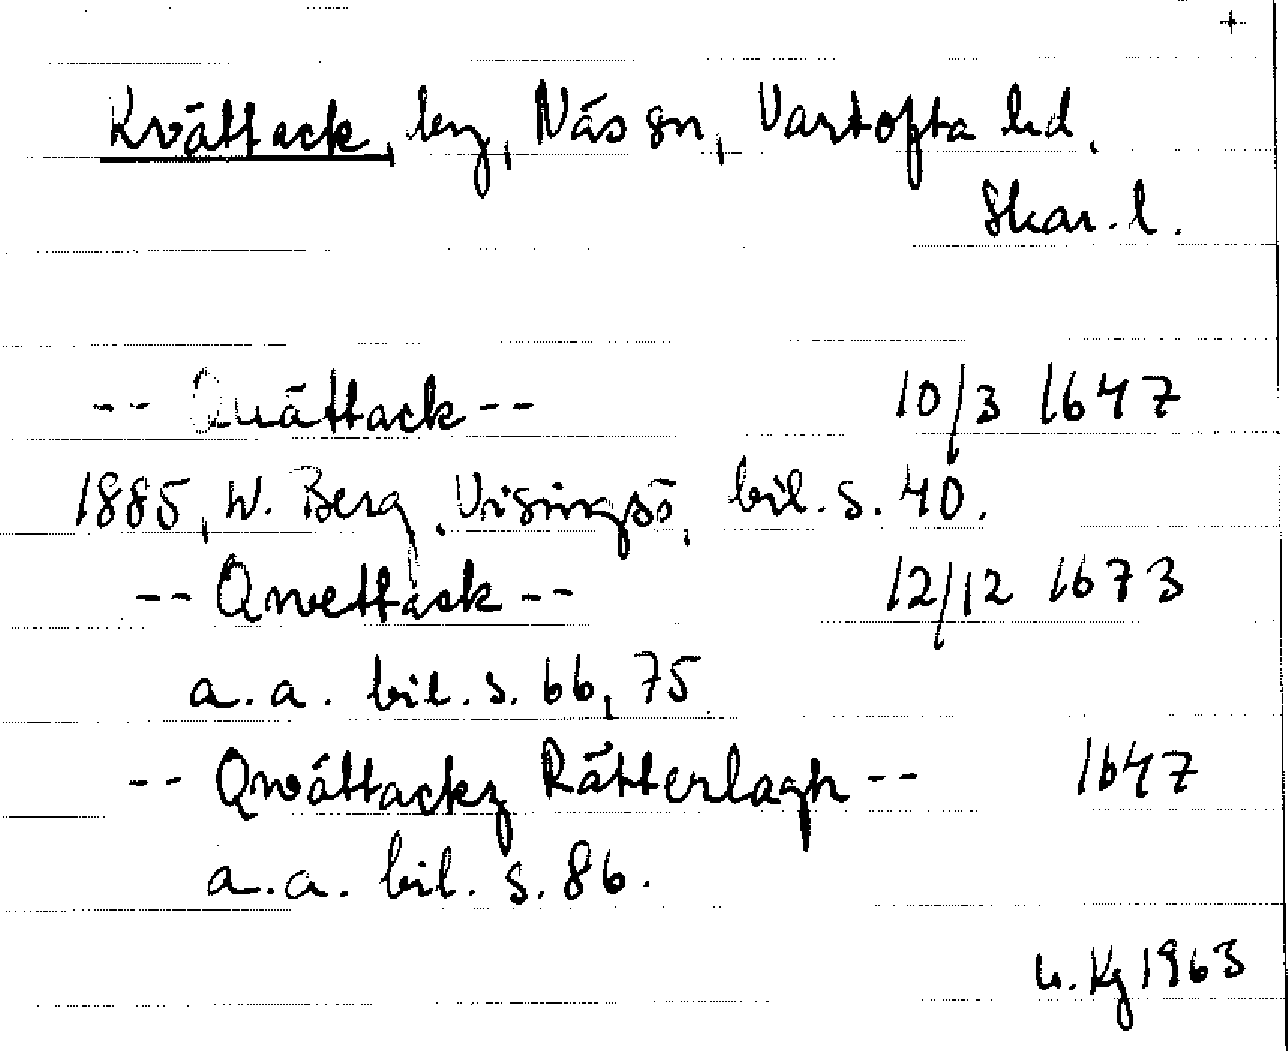 +
Kvättack, by, Näs sn, Vartofta hd.
Skar. l.
-- Quättack -- 10/3 1647
1885, W. Berg, Visingsö, bil. s. 40.
-- Qwettack -- 12/12 1673
a. a. bil. s. 66, 75.
-- Qwättackz Rätterlagh -- 1647
a. a. bil. s. 86.
u. Kg 1963